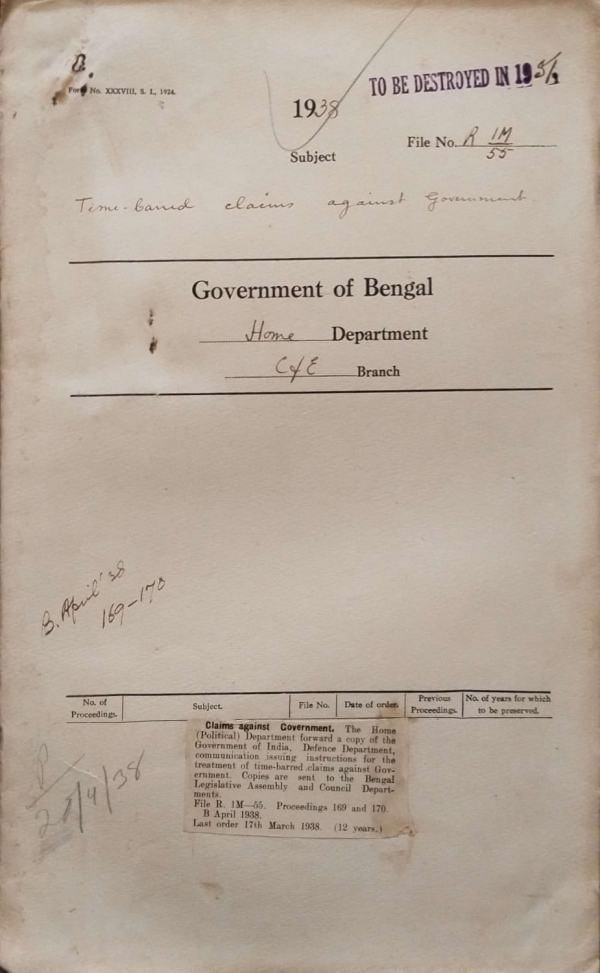 Form No. XXXVIII, S. I., 1924.
TO BE DESTROYED IN 195
1938
File No. R 1M/55
Subject
Time-barred claims against Government
Government of Bengal
Home Department
C & E Branch
B. April '38
169-170
No. of Proceedings.
Subject.
File No.
Date of order.
Previous Proceedings.
No. of years for which to be preserved.
Claims against Government. The Home
(Political) Department forward a copy of the
Government of India, Defence Department,
communication issuing instructions for the
treatment of time-barred claims against Gov-
ernment. Copies are sent to the Bengal
Legislative Assembly and Council Depart-
ments.
File R. 1M—55. Proceedings 169 and 170.
B April 1938.
Last order 17th March 1938. (12 years.)
/4/38